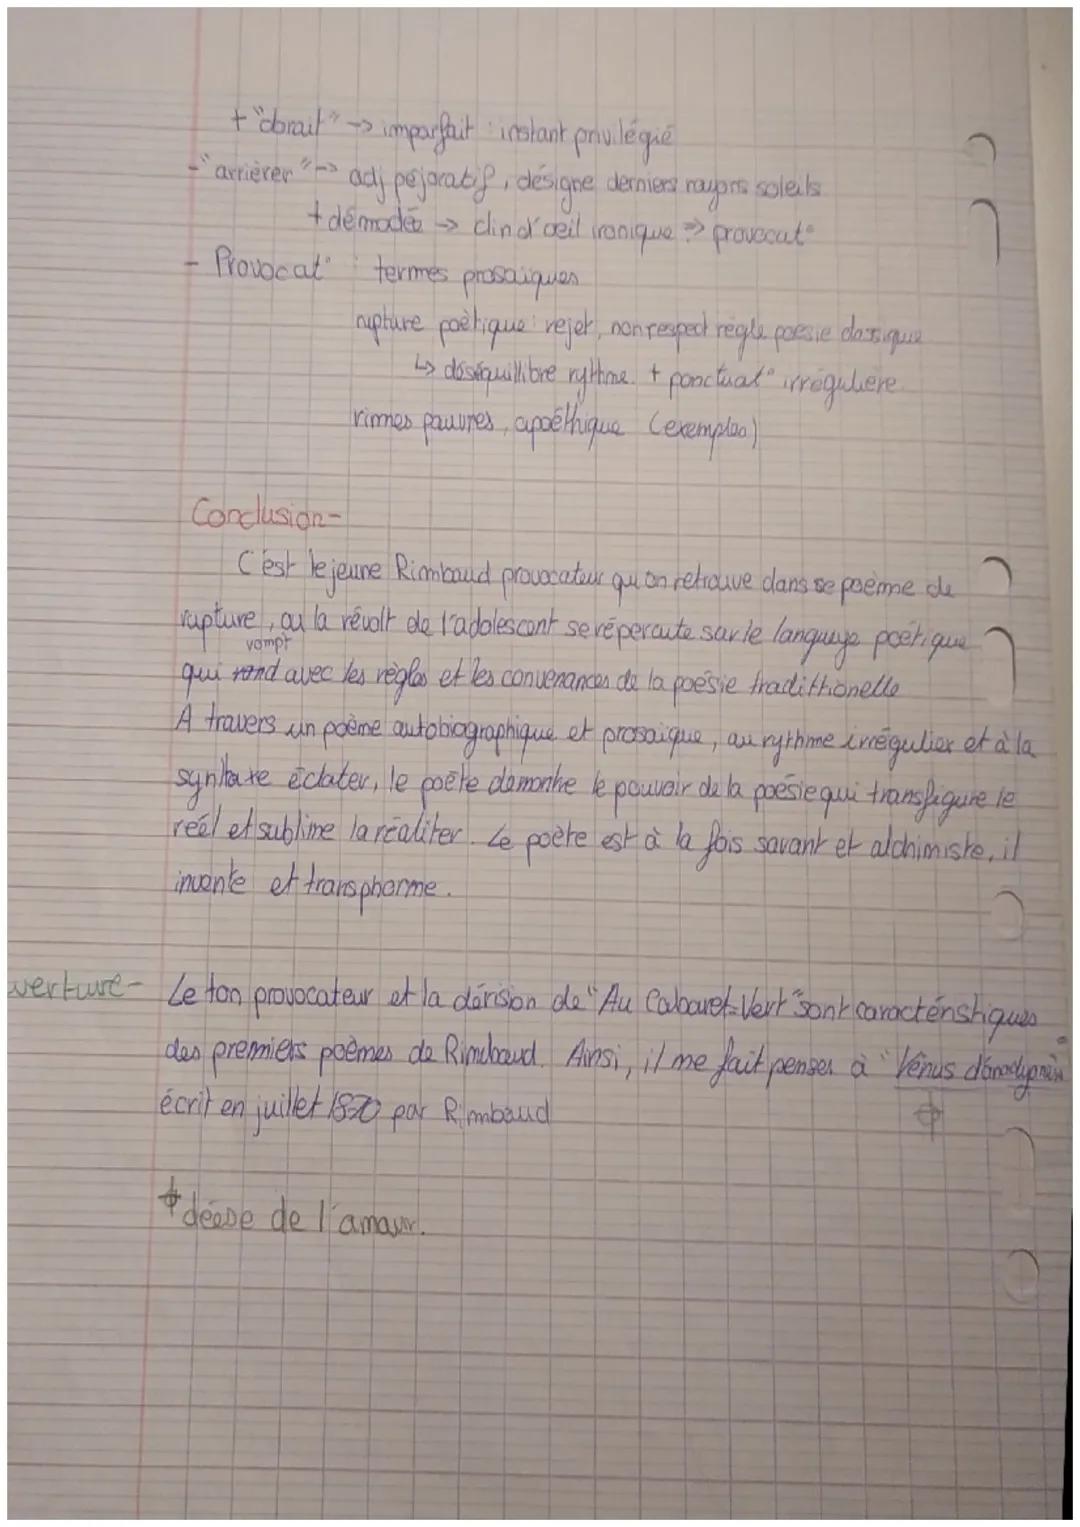 + "dorait" -> imparfait : instant privilégié
- "arrièrer" -> adj péjoratif, désigne derniers rayons soleils
+ démodée -> clin d'oeil ironique => provocat°
- Provocat° : termes prosaïques
rupture poètique : rejet, non respect règle poésie classique
↳ déséquillibre rythme + ponctuat° irrégulière
rimes pauvres, apoéthique (exemples)
Conclusion-
C'est le jeune Rimbaud provocateur qu'on retrouve dans se poème de
rupture, ou la révolt de l'adolescent se répercute sur le language poètique
rompt
qui rond avec les règles et les convenances de la poésie tradithionelle
A travers un poème autobiographique et prosaïque, au rythme irrégulier et à la
synthaxe éclater, le poète démontre le pouvoir de la poésie qui transfigure le
réel et sublime la réaliter. Le poète est à la fois savant et alchimiste, il
invente et transphorme.
verture- Le ton provocateur et la dérision de "Au Cabaret-Vert" sont caractéristiques
des premiers poèmes de Rimbaud. Ainsi, il me fait penser à "Vénus
écrit en juillet 1870 par Rimbaud
déesse de l'amour.